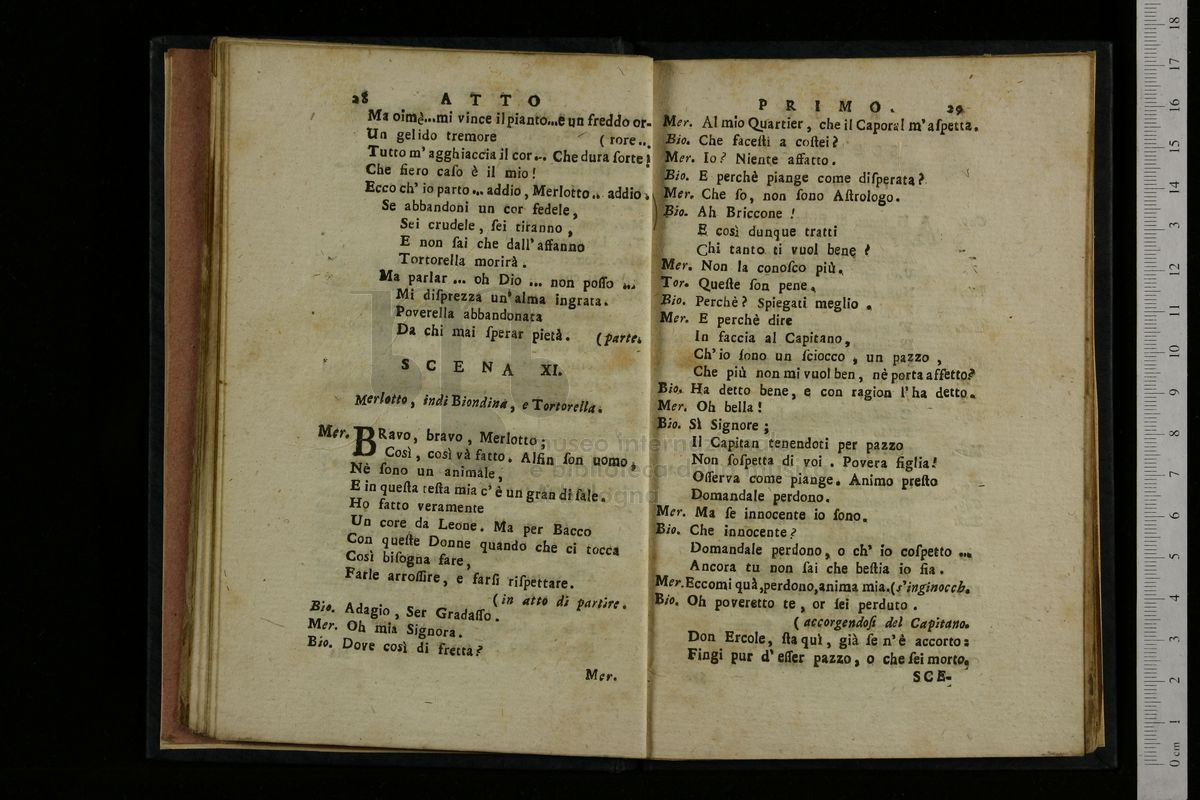 28 ATTO
Ma oimè...mi vince il pianto...e un freddo or-
Un gelido tremore (rore...
Tutto m'agghiaccia il cor... Che dura ſorte!
Che fiero caſo è il mio!
Ecco ch'io parto... addio, Merlotto.. addio.
Se abbandoni un cor fedele,
Sei crudele, ſei tiranno,
E non ſai che dall'affanno
Tortorella morirà.
Ma parlar ... oh Dio ... non poſſo ...
Mi diſprezza un'alma ingrata.
Poverella abbandonata
Da chi mai ſperar pietà. (parte.
SCENA XI.
Merlotto, indi Biondina, e Tortorella.
Mer. BRavo, bravo, Merlotto;
Così, così và fatto. Alfin ſon uomo,
Nè ſono un animale,
E in queſta teſta mia c'è un gran di ſale.
Ho fatto veramente
Un core da Leone. Ma per Bacco
Con queſte Donne quando che ci tocca
Così biſogna fare,
Farle arroſſire, e farſi riſpettare.
(in atto di partire.
Bio. Adagio, Ser Gradaſſo.
Mer. Oh mia Signora.
Bio. Dove così di fretta?
Mer.
PRIMO. 29
Mer. Al mio Quartier, che il Caporal m'aſpetta.
Bio. Che faceſti a coſtei?
Mer. Io? Niente affatto.
Bio. E perchè piange come diſperata?
Mer. Che ſo, non ſono Aſtrologo.
Bio. Ah Briccone!
E così dunque tratti
Chi tanto ti vuol bene?
Mer. Non la conoſco più.
Tor. Queſte ſon pene.
Bio. Perchè? Spiegati meglio.
Mer. E perchè dire
In faccia al Capitano,
Ch'io ſono un ſciocco, un pazzo,
Che più non mi vuol ben, nè porta affetto?
Bio. Ha detto bene, e con ragion l'ha detto.
Mer. Oh bella!
Bio. Sì Signore;
Il Capitan tenendoti per pazzo
Non ſoſpetta di voi. Povera figlia!
Oſſerva come piange. Animo preſto
Domandale perdono.
Mer. Ma ſe innocente io ſono.
Bio. Che innocente?
Domandale perdono, o ch'io coſpetto ...
Ancora tu non ſai che beſtia io ſia.
Mer. Eccomi quà, perdono, anima mia. (s'inginocch.
Bio. Oh poveretto te, or ſei perduto.
(accorgendoſi del Capitano.
Don Ercole, ſta quì, già ſe n'è accorto:
Fingi pur d'eſſer pazzo, o che ſei morto.
SCE-